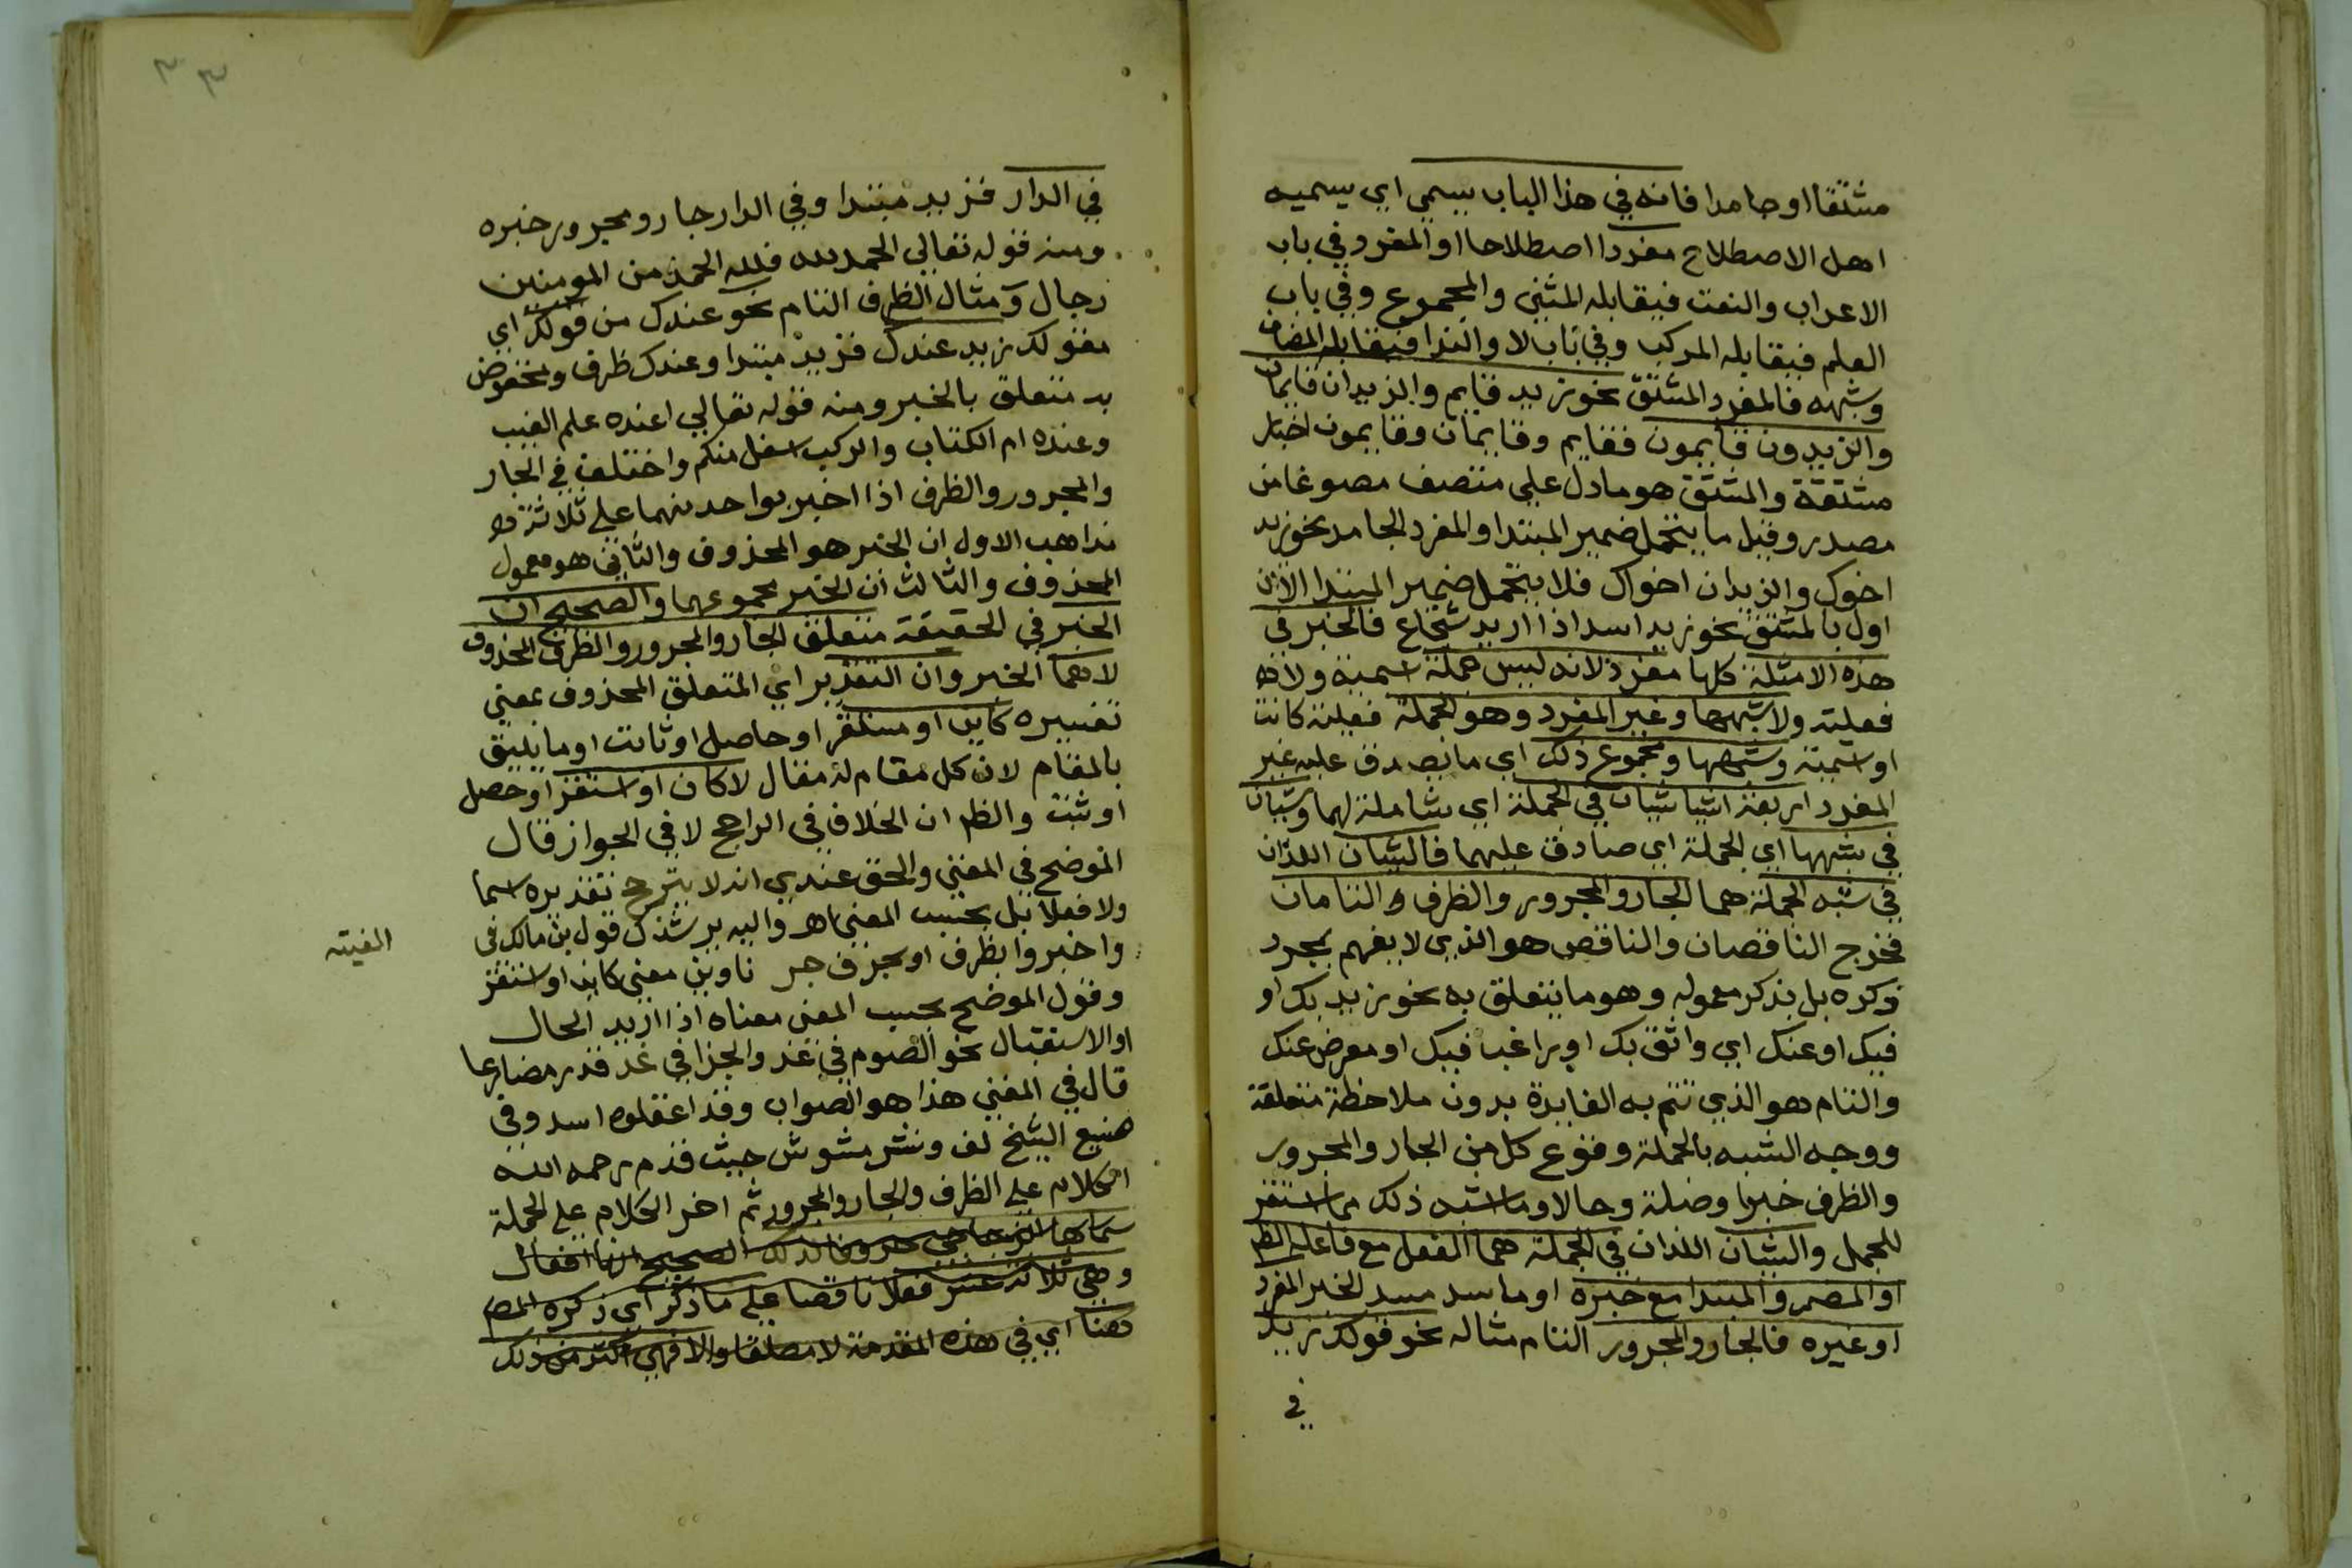 مشتقا او جامدا فانه في هذا الباب يسمي اي يسميه
اهل الاصطلاح مفردا اصطلاحا او المفرد في باب
الاعراب والنعت فيقابله المثني والمجموع وفي باب
العلم فيقابله المركب وفي باب لا والندا فيقابله المضاف
وشبهه فالمفرد المشتق نحو زيد قايم والزيدان قايمان
والزيدون قايمون فقايم وقايمان وقايمون اخبار
مشتقة والمشتق هو ما دل علي متصف مصوغا من
مصدر وقيل ما يتحمل ضمير المبتدا والمفرد الجامد نحو زيد
اخوك والزيدان اخواك فلا يتحمل ضمير المبتدا الا ان
اول بالمشتق نحو زيد اسد اذا اريد شجاع فالخبر في
هذه الامثلة كلها مفرد لانه ليس جملة اسمية ولا
فعلية ولا شبهها وغير المفرد وهو الجملة فعلية كانت
او اسمية وشبهها ومجموع ذلك اي ما يصدق عليه غير
المفرد اربعة اشيا شيان في الجملة اي شاملة لهما وشيان
في شبهها اي الجملة اي صادق عليهما فالشيان اللذان
في شبه الجملة هما الجار والمجرور والظرف التامان
فخرج الناقصان والناقص هو الذي لا يفهم بمجرد
ذكره بل بذكر معموله وهو ما يتعلق به نحو زيد بك او
فيك او عنك اي واثق بك او راغب فيك او معرض عنك
والتام هو الذي تتم به الفايدة بدون ملاحظة متعلقة
ووجه الشبه بالجملة وقوع كل من الجار والمجرور
والظرف خبرا وصلة وحالا وما اشبه ذلك مما استقر
للجمل والشيان اللذان في الجملة هما الفعل مع فاعله الظ
او المضمر والمبتدا مع خبره او ما سد مسد الخبر المفرد
او غيره فالجار والمجرور التام مثاله نحو قولك زيد
في
٣٣
في الدار فزيد مبتدا وفي الدار جار ومجرور خبره
ومنه قوله تعالي الحمد لله فلله الحمد من المومنين
رجال ومثال الظرف التام نحو عندك من قولك اي
مقولك زيد عندك فزيد مبتدا وعندك ظرف ومخفوض
به متعلق بالخبر ومنه قوله تعالي اعنده علم الغيب
وعنده ام الكتاب والركب اسفل منكم واختلف في الجار
والمجرور والظرف اذا اخبر بواحد منهما علي ثلاثة
مذاهب الاول ان الخبر هو المحذوف والثاني هو معمول
المحذوف والثالث ان الخبر مجموعهما والصحيح ان
الخبر في الحقيقة متعلق الجار والمجرور والظرف المحذوف
لا هما الخبر وان التقدير اي المتعلق المحذوف بمعني
تفسيره كاين او مستقر او حاصل او ثابت او ما يليق
بالمقام لان كل مقام له مقال لا كان او استقر او حصل
او ثبت والظ ان الخلاف في الراجح لا في الجواز قال
الموضح في المغني والحق عندي انه لا يترجح تقديره اسما
ولا فعلا بل بحسب المعني اهـ واليه يرشدك قول بن مالك في
الفيته
واخبروا بظرف او بحرف جر ناوين معني كاين او استقر
وقول الموضح بحسب المعني معناه اذا اريد الحال
او الاستقبال نحو الصوم في غد والجزا في غد قدر مضارعا
قال في المغني هذا هو الصواب وقد اغفلوه اسد وفي
صنيع الشيخ لف ونشر مشوش حيث قدم رحمه الله
الكلام علي الظرف والجار والمجرور ثم اخر الكلام علي الجملة
سماها الزجاجي حروفا لذلك الصحيح انها افعال
وهي ثلاثة عشر فعلا ناقصا علي ما ذكر اي ذكره المص
هنا اي في هذه المقدمة لا مطلقا والا فهي اكثر من ذلك